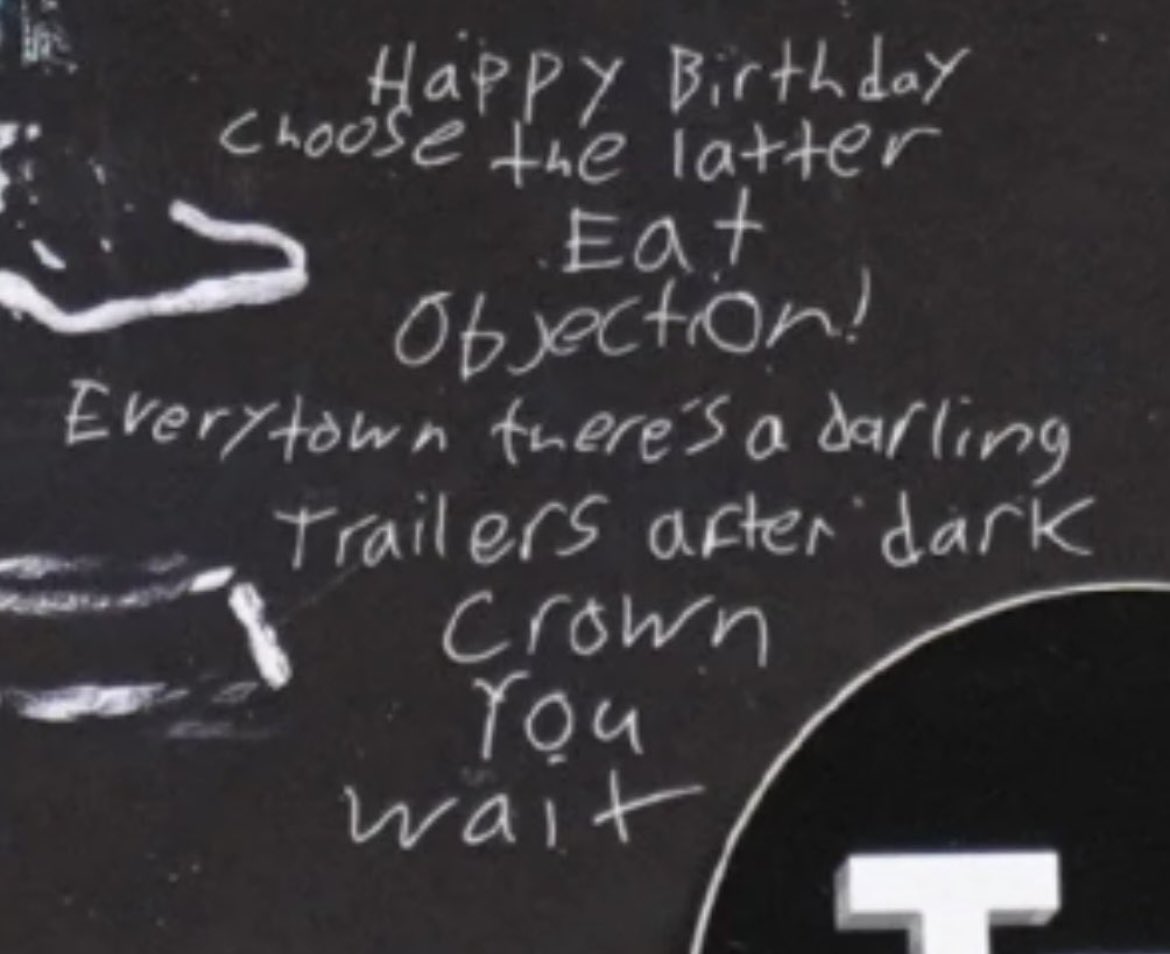 Happy Birthday
Choose the latter
Eat
Objection!
Everytown there's a darling
Trailers after dark
Crown
You
Wait
T